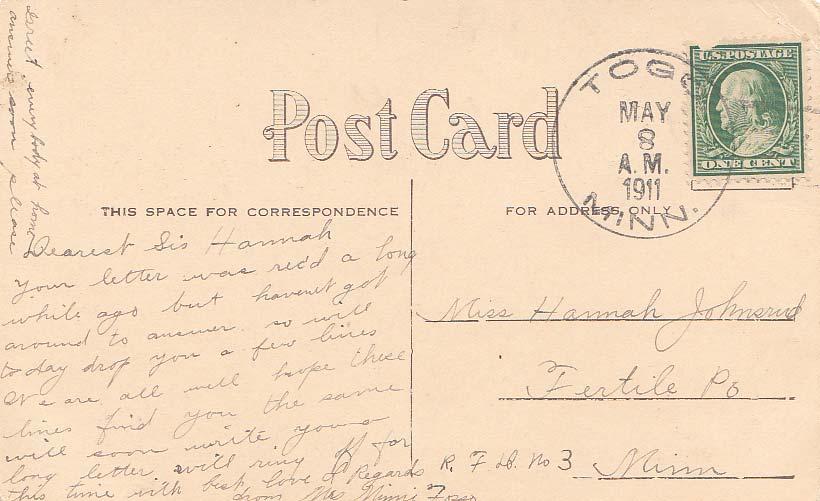 Greet everybody at home
answer soon please
Post Card
TOGO
MAY
8
A.M.
1911
MINN.
U.S. POSTAGE
ONE CENT
THIS SPACE FOR CORRESPONDENCE
FOR ADDRESS ONLY
Dearest Sis Hannah
Your letter was rec'd a long
while ago but havent got
around to answer. so will
to day drop you a few lines
We are all well hope these
lines find you the same
will soon write you a
long letter will ring off for
this time with best love & Regards
from Mrs Minnie Foss
Miss Hannah Johnsrud
Fertile Po
R. F. D. No 3 Minn